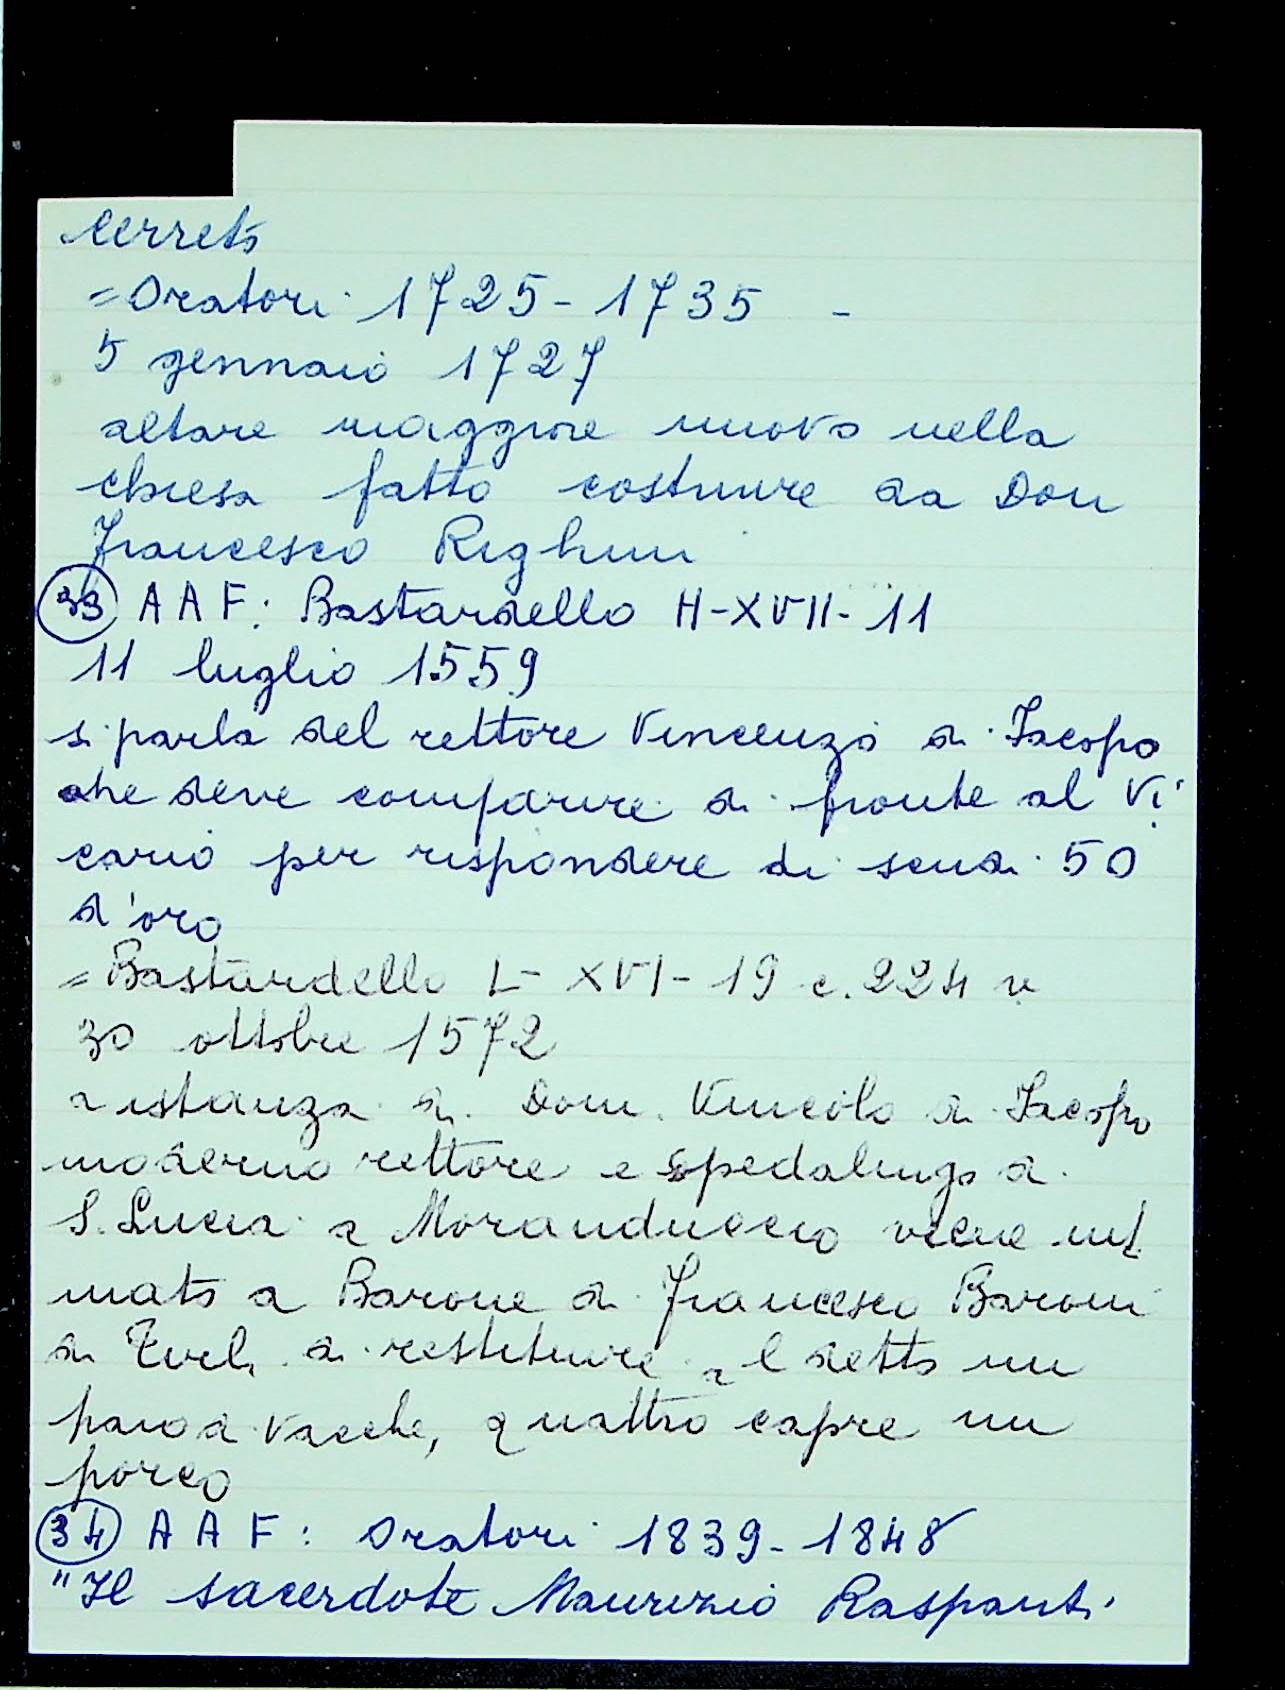 Cerreto
= Oratori 1725 - 1735 -
5 gennaio 1727
altare maggiore nuovo nella
chiesa fatto costruire da Don
Francesco Righini
33 A A F: Bastardello H-XVII-11
11 luglio 1559
si parla del rettore Vincenzo di Jacopo
che deve comparire di fronte al Vi
cario per rispondere di scudi 50
d'oro
= Bastardello L- XVI- 19 c. 224 v
30 ottobre 1572
a istanza di Dom. di Jacopo
moderno rettore e spedalingo di
S. Lucia a Poranduccio viene inti
mato a Barone di Francesco Baroni
di di restituire al detto un
paio di vacche, quattro capre un
porco
34 A A F: Oratori 1839 - 1848
"Il sacerdote Maurizio Raspanti